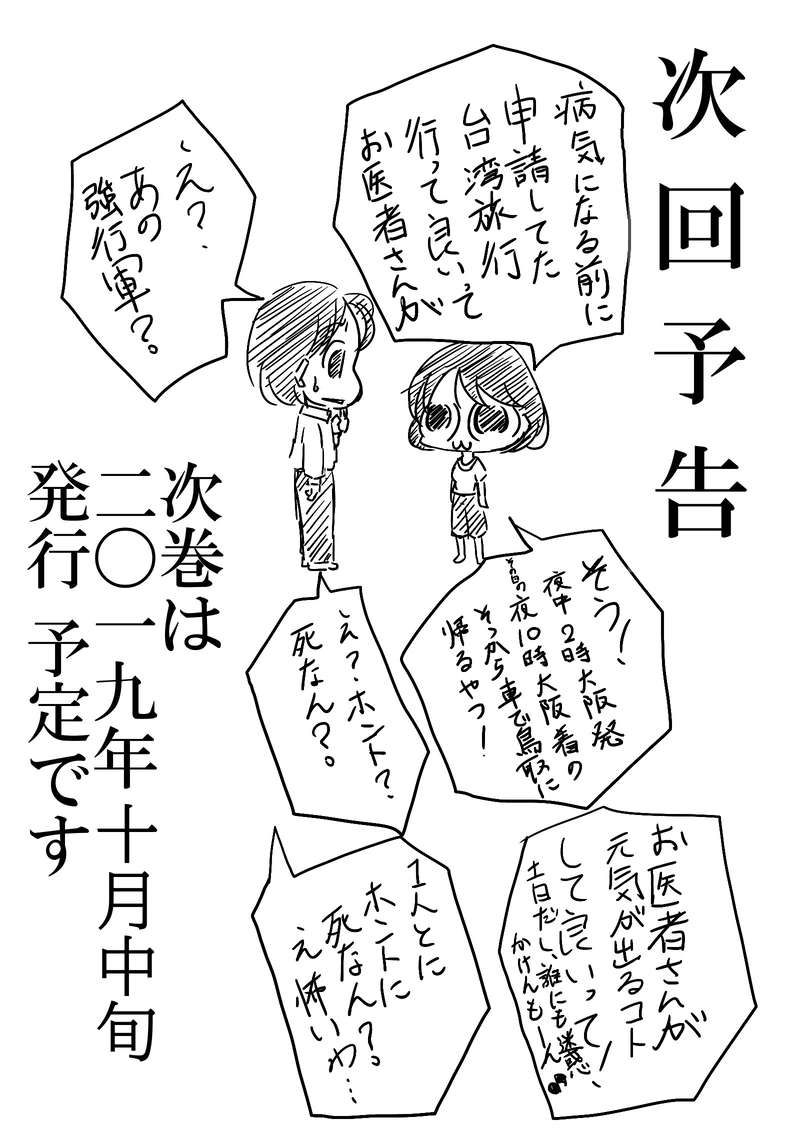 次回予告
病気になる前に
申請してた
台湾旅行
行って良いって
お医者さんが
え?
あの
強行軍?。
そう!
夜中2時大阪発
夜10時大阪着の
そっから車で鳥取に
帰るやつ!
え?ホント?
死なん?。
お医者さんが
元気が出るコト
して良いって!
土日だし、誰にも迷惑、
かけんもーん
1人とに
ホントに
死なん?。
え怖いわ…
次巻は
二〇一九年十月中旬
発行 予定です